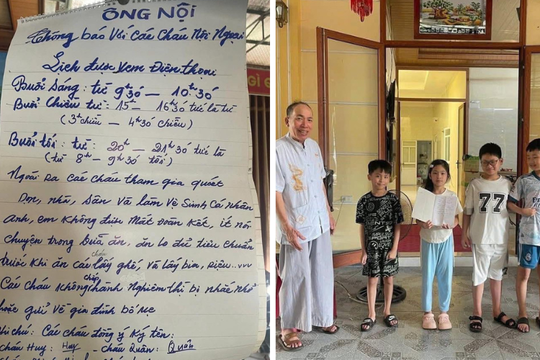 ÔNG NỘI
Thông báo Với Các Cháu Nội Ngoại
Lịch được xem Điện thoại
Buổi Sáng: từ 9h30 – 10h30
Buổi Chiều từ: 15 – 16h30 tức là từ
(3h chiều – 4h30 chiều)
Buổi tối: từ: 20h – 21h30 tức là
(từ 8h – 9h30 tối)
Ngoài ra các cháu tham gia quét
Dọn, nhà, Sân Và làm Vệ Sinh Cá nhân
Anh, em không được Mất đoàn kết, ít nói
chuyện trong bữa ăn, ăn đủ tiêu chuẩn
trước khi ăn cơm lấy ghế, Và lấy bia, Rượu...vv
Các Cháu không chấp hành Nghiêm thì bị nhắc nhở
hoặc gửi Về gia đình bố mẹ
Ghi chú: Các cháu đồng ý Ký tên:
cháu Huy: Huy cháu Quân: Quân
77